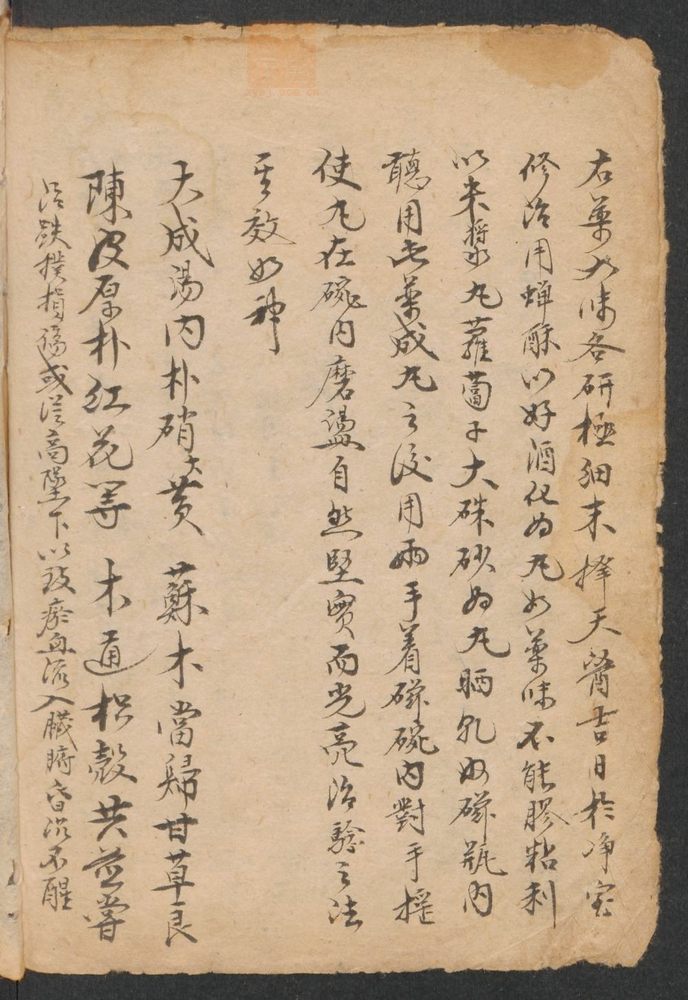 右藥六味各研極細末擇天醫吉日於净室
修治用蟬酥以好酒化為丸如藥味不能膠粘利
以米漿丸蘿蔔子大硃砂為丸晒乳如磁瓶內
聽用此藥成丸之後用兩手着磁碗內對手搖
使丸在碗內磨盪自然堅實而光亮治驗之法
其效如神
大成湯內朴硝大黃 蘇木當歸甘草良
陳皮厚朴紅花等 木通枳殼共益嘗
治跌撲損傷或從高墜下以致瘀血流入臟腑昏沉不醒